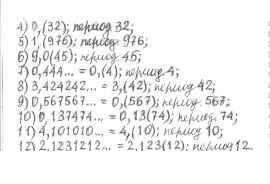 4) 0,(32); период 32;
5) 1,(976); период 976;
6) 9,0(45); период 45;
7) 0,444... = 0,(4); период 4;
8) 3,424242... = 3,(42); период 42;
9) 0,567567... = 0,(567); период 567;
10) 0,137474... = 0,13(74); период 74;
11) 4,101010... = 4,(10); период 10;
12) 2,1231212... = 2,123(12); период 12.